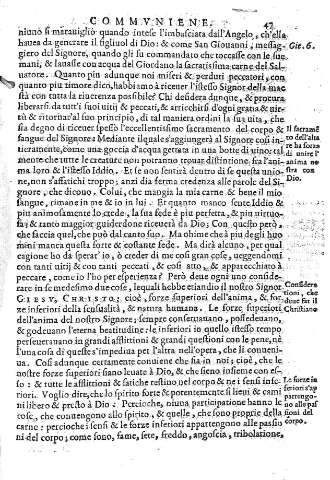 COMMVNIENE. 47
niuno si marauigliò quando intese l'imbasciata dall'Angelo, ch'essa
haueua da generare il figliuol di Dio: & come San Giouanni, messag-
giero del Signore, quando gli fu commandato che toccasse con le sue
mani, & lauasse con acqua del Giordano la sacratissima carne del Sal-
uatore. Quanto più adunque noi miseri & perduti peccatori, con
quanto più timore dico, habbiamo à riceuer l'istesso Signor della mae-
stà con tutta la riuerenza possibile? Chi desidera dunque, & procura
liberarsi da tutt'i suoi uitij & peccati, & arricchirsi d'ogni gratia & uir-
tù & ritornar'al suo principio, di tal maniera ordini la sua uita, che
sia degno di riceuer spesso l'eccellentissimo sacramento del corpo &
sangue del Signore: Mediante il quale s'aggiungerà al Signore così in-
tieramente, come una goccia d'acqua gettata in una botte di uino: tal-
mente che tutte le creature non potranno trouar distintione, fra l'ani-
ma loro & l'istesso Iddio. Et se non sentirà dentro di se questa unio-
ne, non s'affliggi troppo; anzi dia ferma credenza alle parole del Si-
gnore, che dicono. Colui, che mangia la mia carne & beue il mio
sangue, rimane in me & io in lui. Et quanto manco sente Iddio &
più animosamente lo crede, la sua fede è più perfetta, & più uirtuo-
sa; & tanto maggior guiderdone riceuerà da Dio; Con questo però,
che faccia quel, che può dal canto suo. Ma ohime che à più degli huo-
mini manca questa forte & costante fede. Ma dirà alcuno, per qual
cagione ho dà sperar'io, ò creder di me cosi gran cose, ueggendomi
con tanti uitij & con tanti peccati, & così atto, & apparecchiato à
peccare, come io l'ho per esperienza? Però deue ogni uno considera-
re in se medesimo due cose, lequali hebbe etiandio il nostro Signor
GIESV, CHRISTO; cioè, forze superiori dell'anima, & for-
ze inferiori della sensualità, & natura humana. Le forze superiori
dell'anima del nostro Signore; sempre conseruauano, possedeuano,
& godeuano l'eterna beatitudine: le inferiori in quello istesso tempo
perseuerauano in grandi afflittioni & grandi questioni con le pene, nè
l'una cosa di queste s'impediua per l'altra nell'opera, che li conueni-
ua. Così adunque certamente conuiene che sia in noi; cioè, che le
nostre forze superiori siano leuate à Dio, & che sieno insieme con es-
so: & tutte le afflittioni & fatiche restino nel corpo & ne i sensi infe-
riori. Voglio dire, che lo spirito forte & potentemente si lieui & cami
ni libero & presto à Dio: Percioche, niuna participatione hanno le
cose, che contengono allo spirito, & quelle, che sono proprie della
carne: percioche; sensi & le forze inferiori appartengono alle passio
ni del corpo; come sono, fame, sete, freddo, angoscia, tribolatione,
Gio. 6.
Il sacramẽ
to dell'alta
re ha forza
di unire l'
anima no
stra con
Dio.
Considera
tioni, che
due sia il
Christiano
Le forze in
feriori s'ap
partengo-
no alle pas
sioni del
corpo.